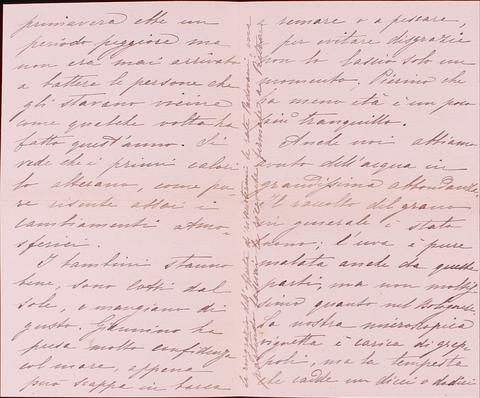 primavera ebbe un
periodo peggiore ma
non era mai arrivato
a battere le persone che
gli stavano vicine
come qualche volta ha
fatto quest'anno. Si
vede che i primi calori
lo alterano, come pu-
re risente assai i
cambiamenti atmo-
sferici.
I bambini stanno
bene, sono cotti dal
sole, e mangiano di
gusto. Giannino ha
presa molto confidenza
col mare, appena
può scappa in barca
a remare o a pescare,
per evitare disgrazie
non lo lascio solo un
momento. Pierino che
ha meno età è un poco
più tranquillo.
Anche noi abbiamo
avuto dell'acqua in
grandissima abbondanza.
Il raccolto del grano
in generale è stato
buono; l'uva è pure
malata anche da queste
parti, ma non moltis-
simo quanto nel bolognese.
La nostra microscopica
vignetta è carica di grap-
poli, ma la tempesta
che cadde un dieci o dodici